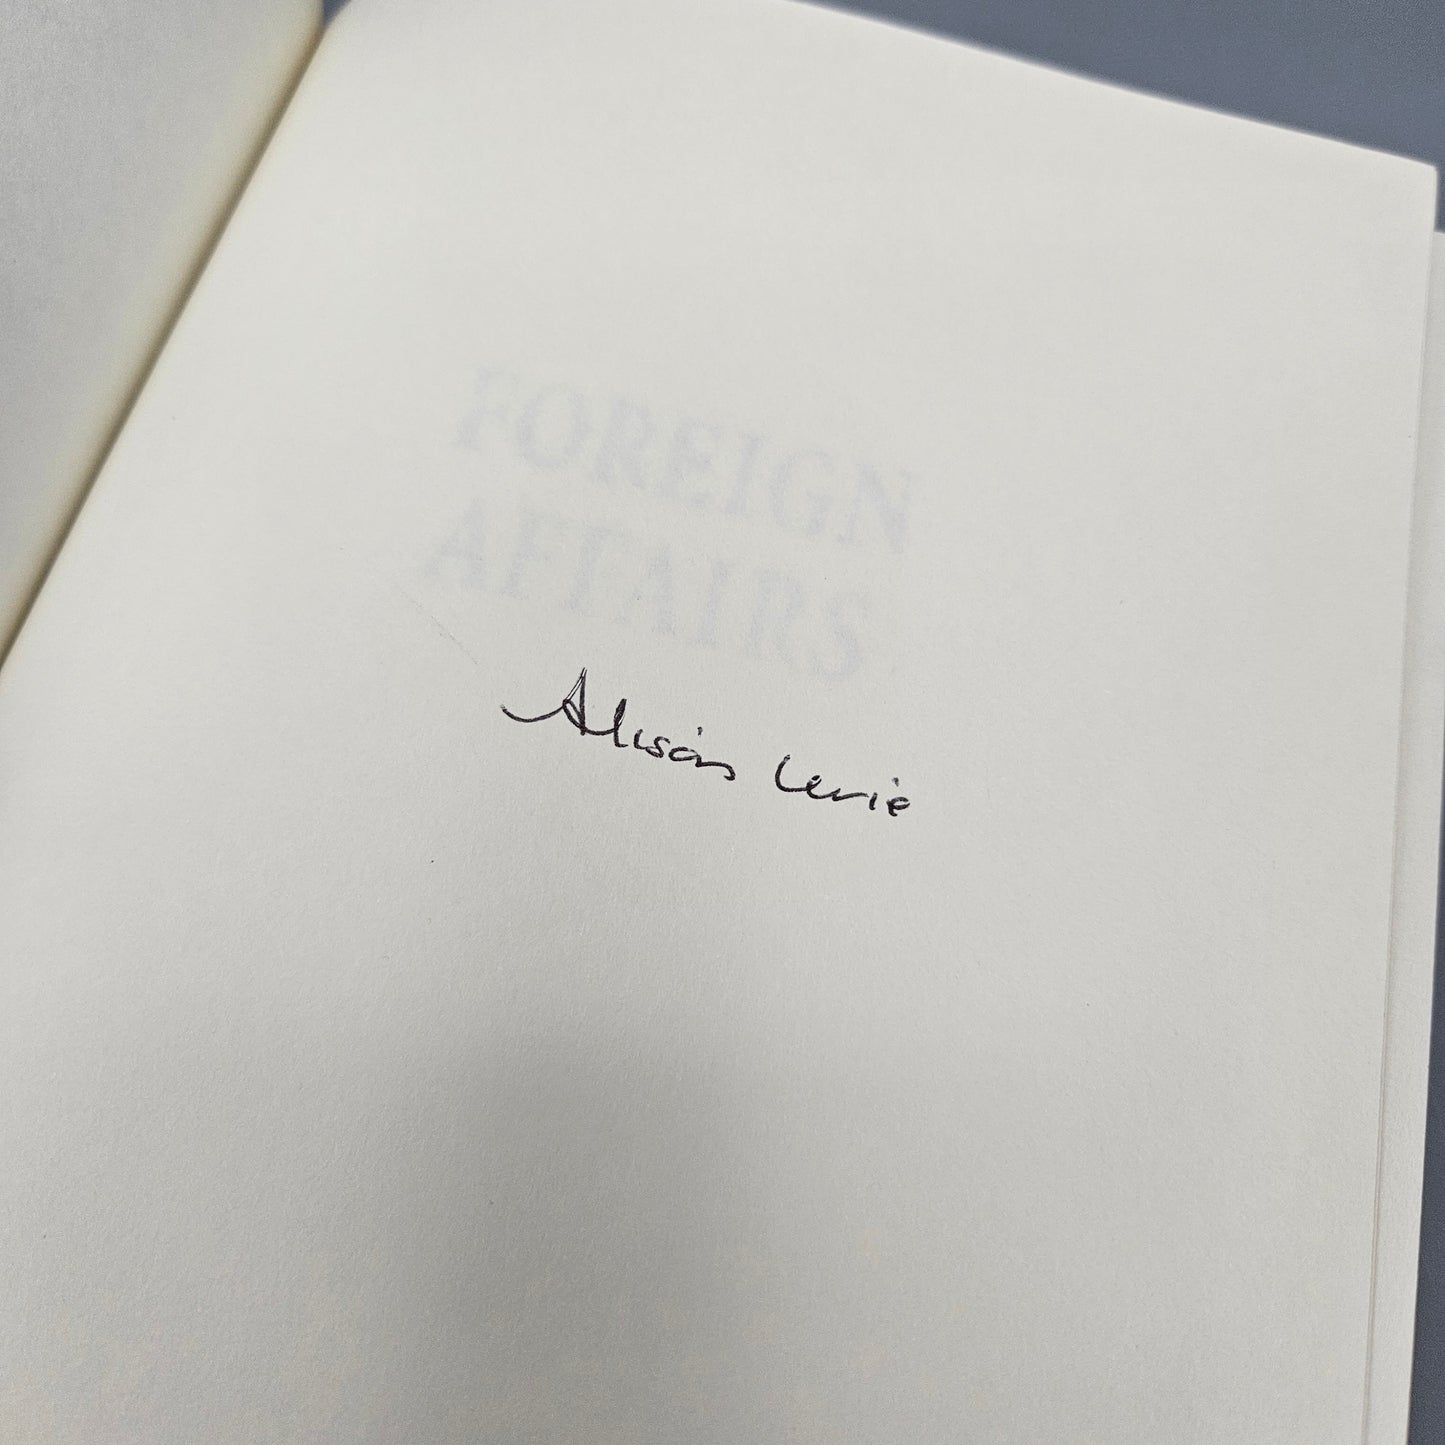 FOREIGN
AFFAIRS
Alison Lurie